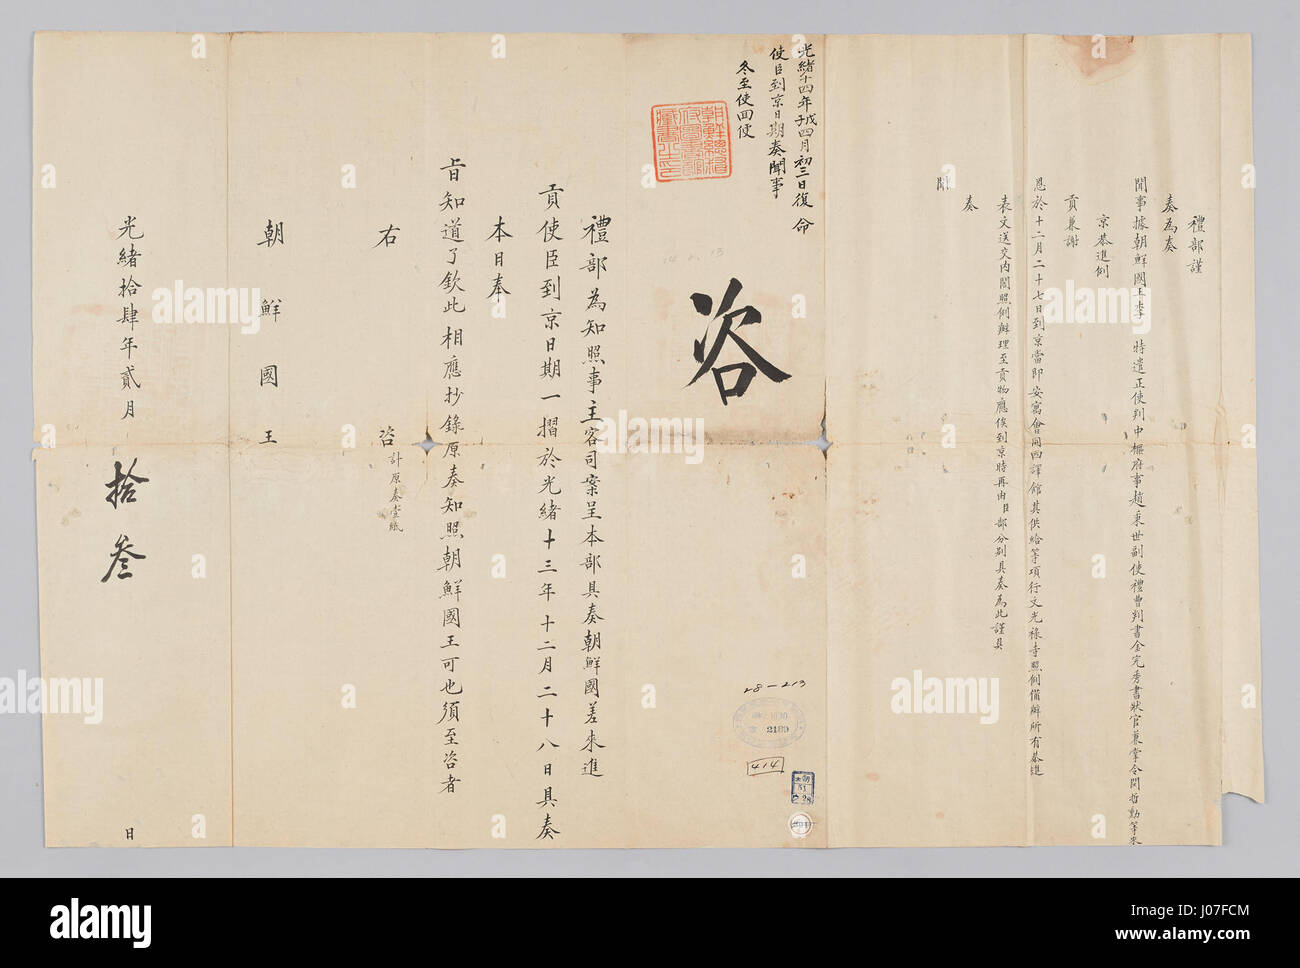 禮部謹
奏為奏
聞事據朝鮮國王李 特遣正使判中樞府事趙秉世副使禮曹判書金完秀書狀官兼掌令閔哲勳等來
京恭進例
貢兼謝
恩於十二月二十七日到京當即安寓會同四譯館其供給等項行文光祿寺照例備辦所有恭進
表文送交內閣照例辦理至貢物應俟到京時再由臣部分別具奏為此謹具
奏
聞
光緒十四年戊子四月初三日復命
使臣到京日期奏聞事
冬至使回便
朝鮮總督
府圖書館
藏書之印
咨
禮部為知照事主客司案呈本部具奏朝鮮國差來進
貢使臣到京日期一摺於光緒十三年十二月二十八日具奏
本日奉
旨知道了欽此相應抄錄原奏知照朝鮮國王可也須至咨者
右 咨 計原奏壹紙
朝鮮國王
光緒拾肆年貳月 拾叁 日
28-213
2189
414
朝
51
alamy
Image ID: J07FCM
www.alamy.com